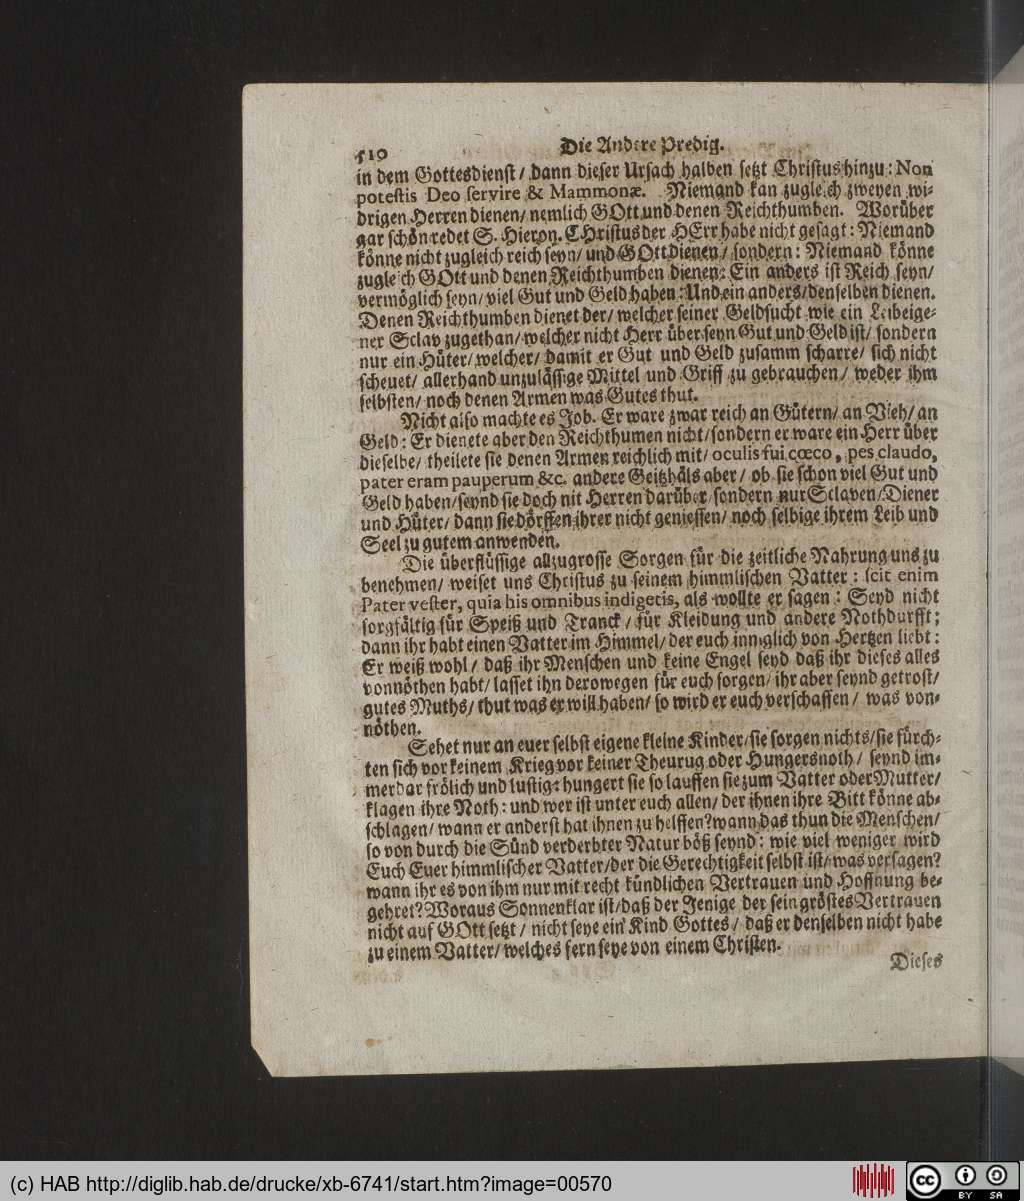 510 Die Andere Predig.
in dem Gottesdienst/ dann dieser Ursach halben setzt Christus hinzu: Non
potestis Deo servire & Mammonæ. Niemand kan zugleich zweyen wi-
drigen Herren dienen/ nemlich GOtt und denen Reichthumben. Worüber
gar schön redet S. Hieron. CHristus der HErr habe nicht gesagt: Niemand
könne nicht zugleich reich seyn/ und GOtt dienen/ sondern: Niemand könne
zugleich GOtt und denen Reichthumben dienen: Ein anders ist Reich seyn/
vermöglich seyn/ viel Gut und Geld haben: Und ein anders/ denselben dienen.
Denen Reichthumben dienet der/ welcher seiner Geldsucht wie ein Leibeige-
ner Sclav zugethan/ welcher nicht Herr über seyn Gut und Geld ist/ sondern
nur ein Hüter/ welcher/ damit er Gut und Geld zusamm scharre/ sich nicht
scheuet/ allerhand unzulässige Mittel und Griff zu gebrauchen/ weder ihm
selbsten/ noch denen Armen was Gutes thut.
Nicht also machte es Job. Er ware zwar reich an Gütern/ an Vieh/ an
Geld: Er dienete aber den Reichthumen nicht/ sondern er ware ein Herr über
dieselbe/ theilete sie denen Armen reichlich mit/ oculis fui cœco, pes claudo,
pater eram pauperum &c. andere Geitzhäls aber/ ob sie schon viel Gut und
Geld haben/ seynd sie doch nit Herren darüber/ sondern nur Sclaven/ Diener
und Hüter/ dann sie dörffen ihrer nicht geniessen/ noch selbige ihrem Leib und
Seel zu gutem anwenden.
Die überflüssige allzugrosse Sorgen für die zeitliche Nahrung uns zu
benehmen/ weiset uns Christus zu seinem himmlischen Vatter: scit enim
Pater vester, quia his omnibus indigetis, als wollte er sagen: Seyd nicht
sorgfältig für Speiß und Tranck/ für Kleidung und andere Nothdurfft;
dann ihr habt einen Vatter im Himmel/ der euch inniglich von Hertzen liebt:
Er weiß wohl/ daß ihr Menschen und keine Engel seyd daß ihr dieses alles
vonnöthen habt/ lasset ihn derowegen für euch sorgen/ ihr aber seynd getrost/
gutes Muths/ thut was er will haben/ so wird er euch verschaffen/ was von-
nöthen.
Sehet nur an euer selbst eigene kleine Kinder/ sie sorgen nichts/ sie fürch-
ten sich vor keinem Krieg vor keiner Theurug oder Hungersnoth/ seynd im-
merdar frölich und lustig: hungert sie so lauffen sie zum Vatter oder Mutter/
klagen ihre Noth: und wer ist unter euch allen/ der ihnen ihre Bitt könne ab-
schlagen/ wann er anderst hat ihnen zu helffen? wann das thun die Menschen/
so von durch die Sünd verderbter Natur böß seynd: wie viel weniger wird
Euch Euer himmlischer Vatter/ der die Gerechtigkeit selbst ist/ was versagen?
wann ihr es von ihm nur mit recht kündlichen Vertrauen und Hoffnung be-
gehret? Woraus Sonnenklar ist/ daß der Jenige der sein gröstes Vertrauen
nicht auf GOtt setzt/ nicht seye ein Kind Gottes/ daß er denselben nicht habe
zu einem Vatter/ welches fern seye von einem Christen.
Dieses
(c) HAB http://diglib.hab.de/drucke/xb-6741/start.htm?image=00570
cc BY SA